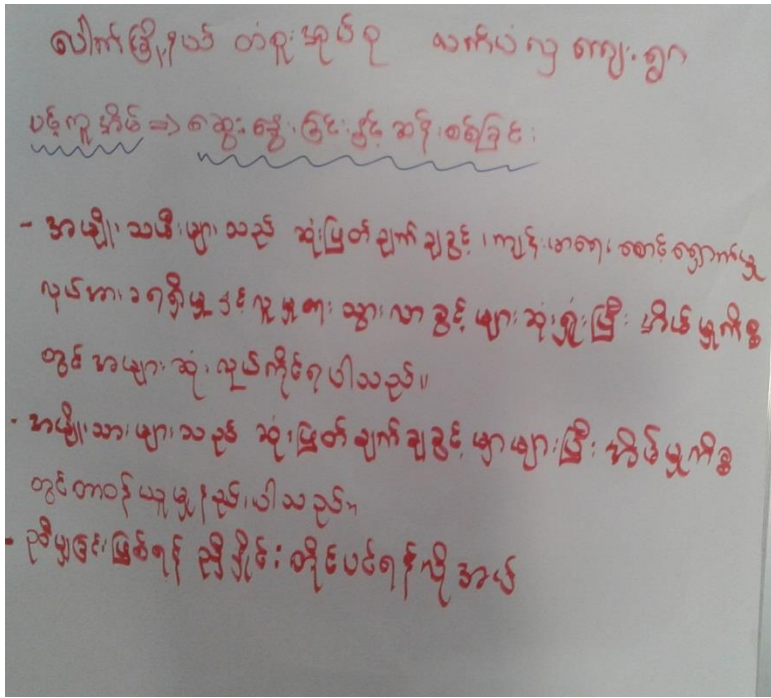 ပေါက်မြို့နယ် တံငူးအုပ်စု သက်ပံလှ ကျေးရွာ
ပင့်ကူအိမ် ⇒ ဆွေးနွေးခြင်းနှင့် ဆန်းစစ်ခြင်း
- အမျိုးသမီးများသည် ဆုံးဖြတ်ချက်ချခွင့်၊ ကျန်းမာရေးစောင့်ရှောက်မှု
လုပ်အားခရရှိမှုနှင့်လူမှုရေးသွားလာခွင့်များဆုံးရှုံးပြီး အိမ်မှုကိစ္စ
တွင်အများဆုံးလုပ်ကိုင်ရပါသည်။
- အမျိုးသားများသည် ဆုံးဖြတ်ချက်ချခွင့်များများပြီး အိမ်မှုကိစ္စ
တွင်တာဝန်ယူမှုနည်းပါသည်။
- ညီမျှခြင်းဖြစ်ရန် ညှိနှိုင်းတိုင်ပင်ရန်လိုအပ်